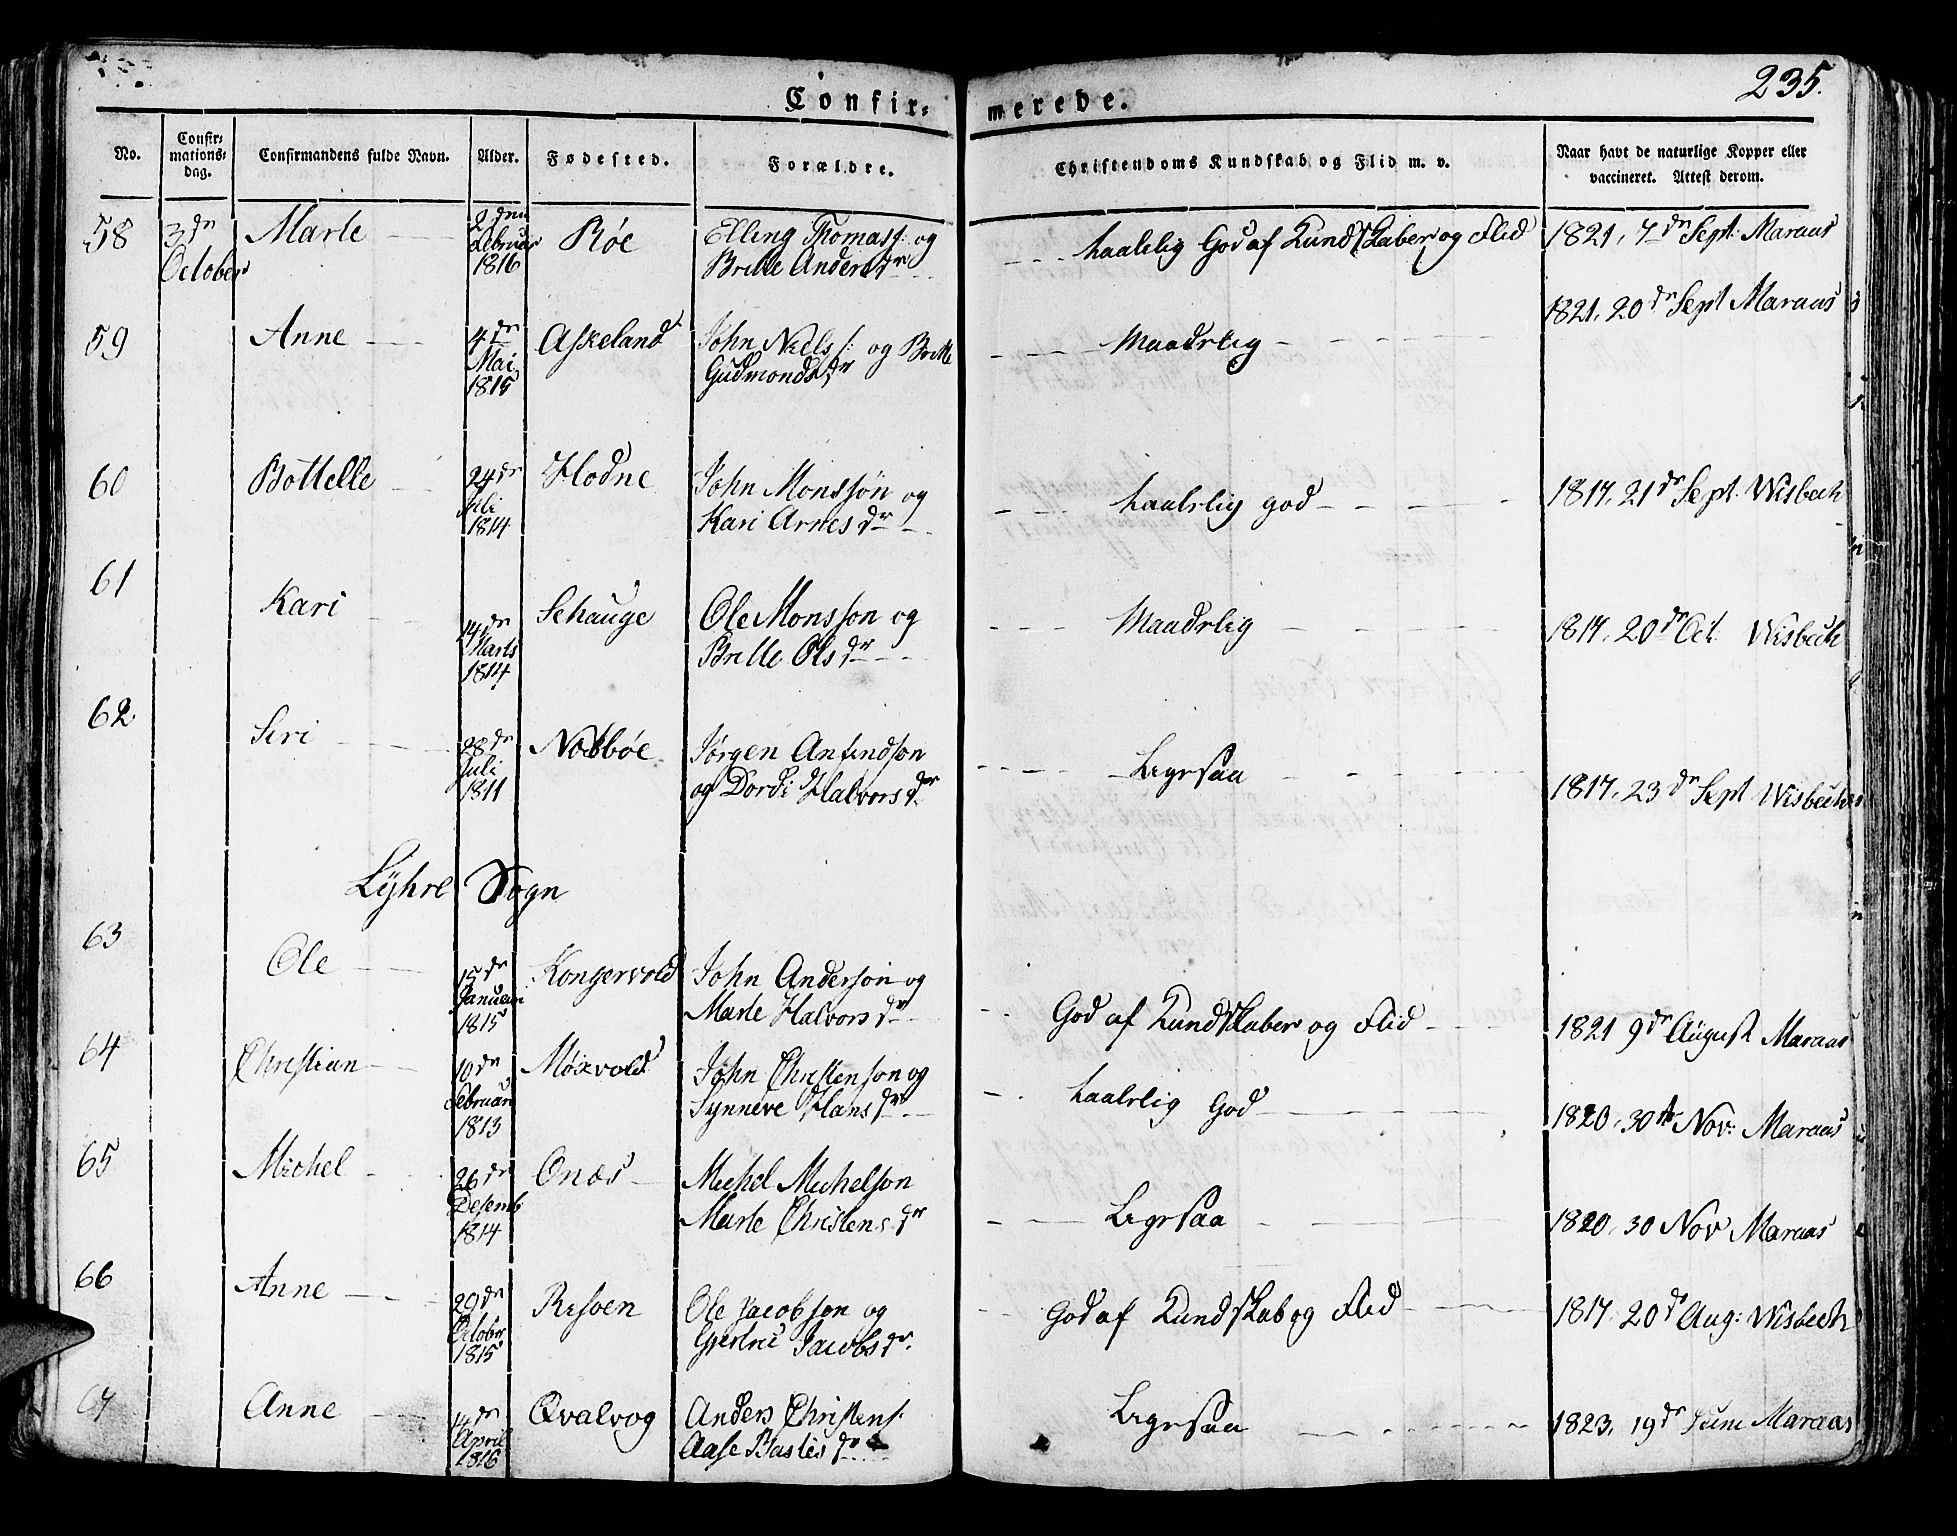 235.
Confir- merede.
No. Confir-mations-dag. Confirmandens fulde Navn. Alder. Fødested. Forældre. Christendoms Kundskab og Flid m. v. Naar havt de naturlige Kopper eller vaccineret. Attest derom.
58 3die Marte 2den Røe Elling Thomass: og taalelig God af Kundskaber og Flid 1821, 7de Sept: Maraas
October Februar Britte Anders dr
1816
59 Anne 4de Askeland John Niels s: og Britte Maadelig 1821, 20de Sept Maraas
Mai Gudmonds dr
1815
60 Bottelle 24de Hodne John Monssøn og taalelig god 1817, 21de Sept. Wisbech
Juli Kari Arnes dr
1814
61 Kari 14de Schauge Ole Monsson og Maadelig 1817, 20de Oct. Wisbech
Marts Britte Ols dr
1814
62 Seri 28de Jørgen Anfindson Ligesaa 1817, 23de Sept Wisbech
Juli og Dordi Halvors dr
1811
Lyhre Sogn
63 Ole 15de Kongervold John Anderson og God af Kundskaber og Flid 1821 9de August Maraas
Januari Marte Halvors dr
1815
64 Christian 10de Moxvold John Christenson og taalelig God 1820, 30te Nov: Maraas
Februar Synneve Hans dr
1813
65 Michel 26de Onæs Michel Michelson Ligesaa 1820, 30 Nov Maraas
Desemb Marte Christens dr
1814
66 Anne 29de Risøen Ole Jacobson og God af Kundskab og Flid 1817, 20de Aug: Wisbech
October Gjertrui Jacobs dr.
1815
67 Anne 14de Qvalvog Anders Christens: Ligesaa 1823, 19de Juni Maraas
April Aase Basties dr
1816